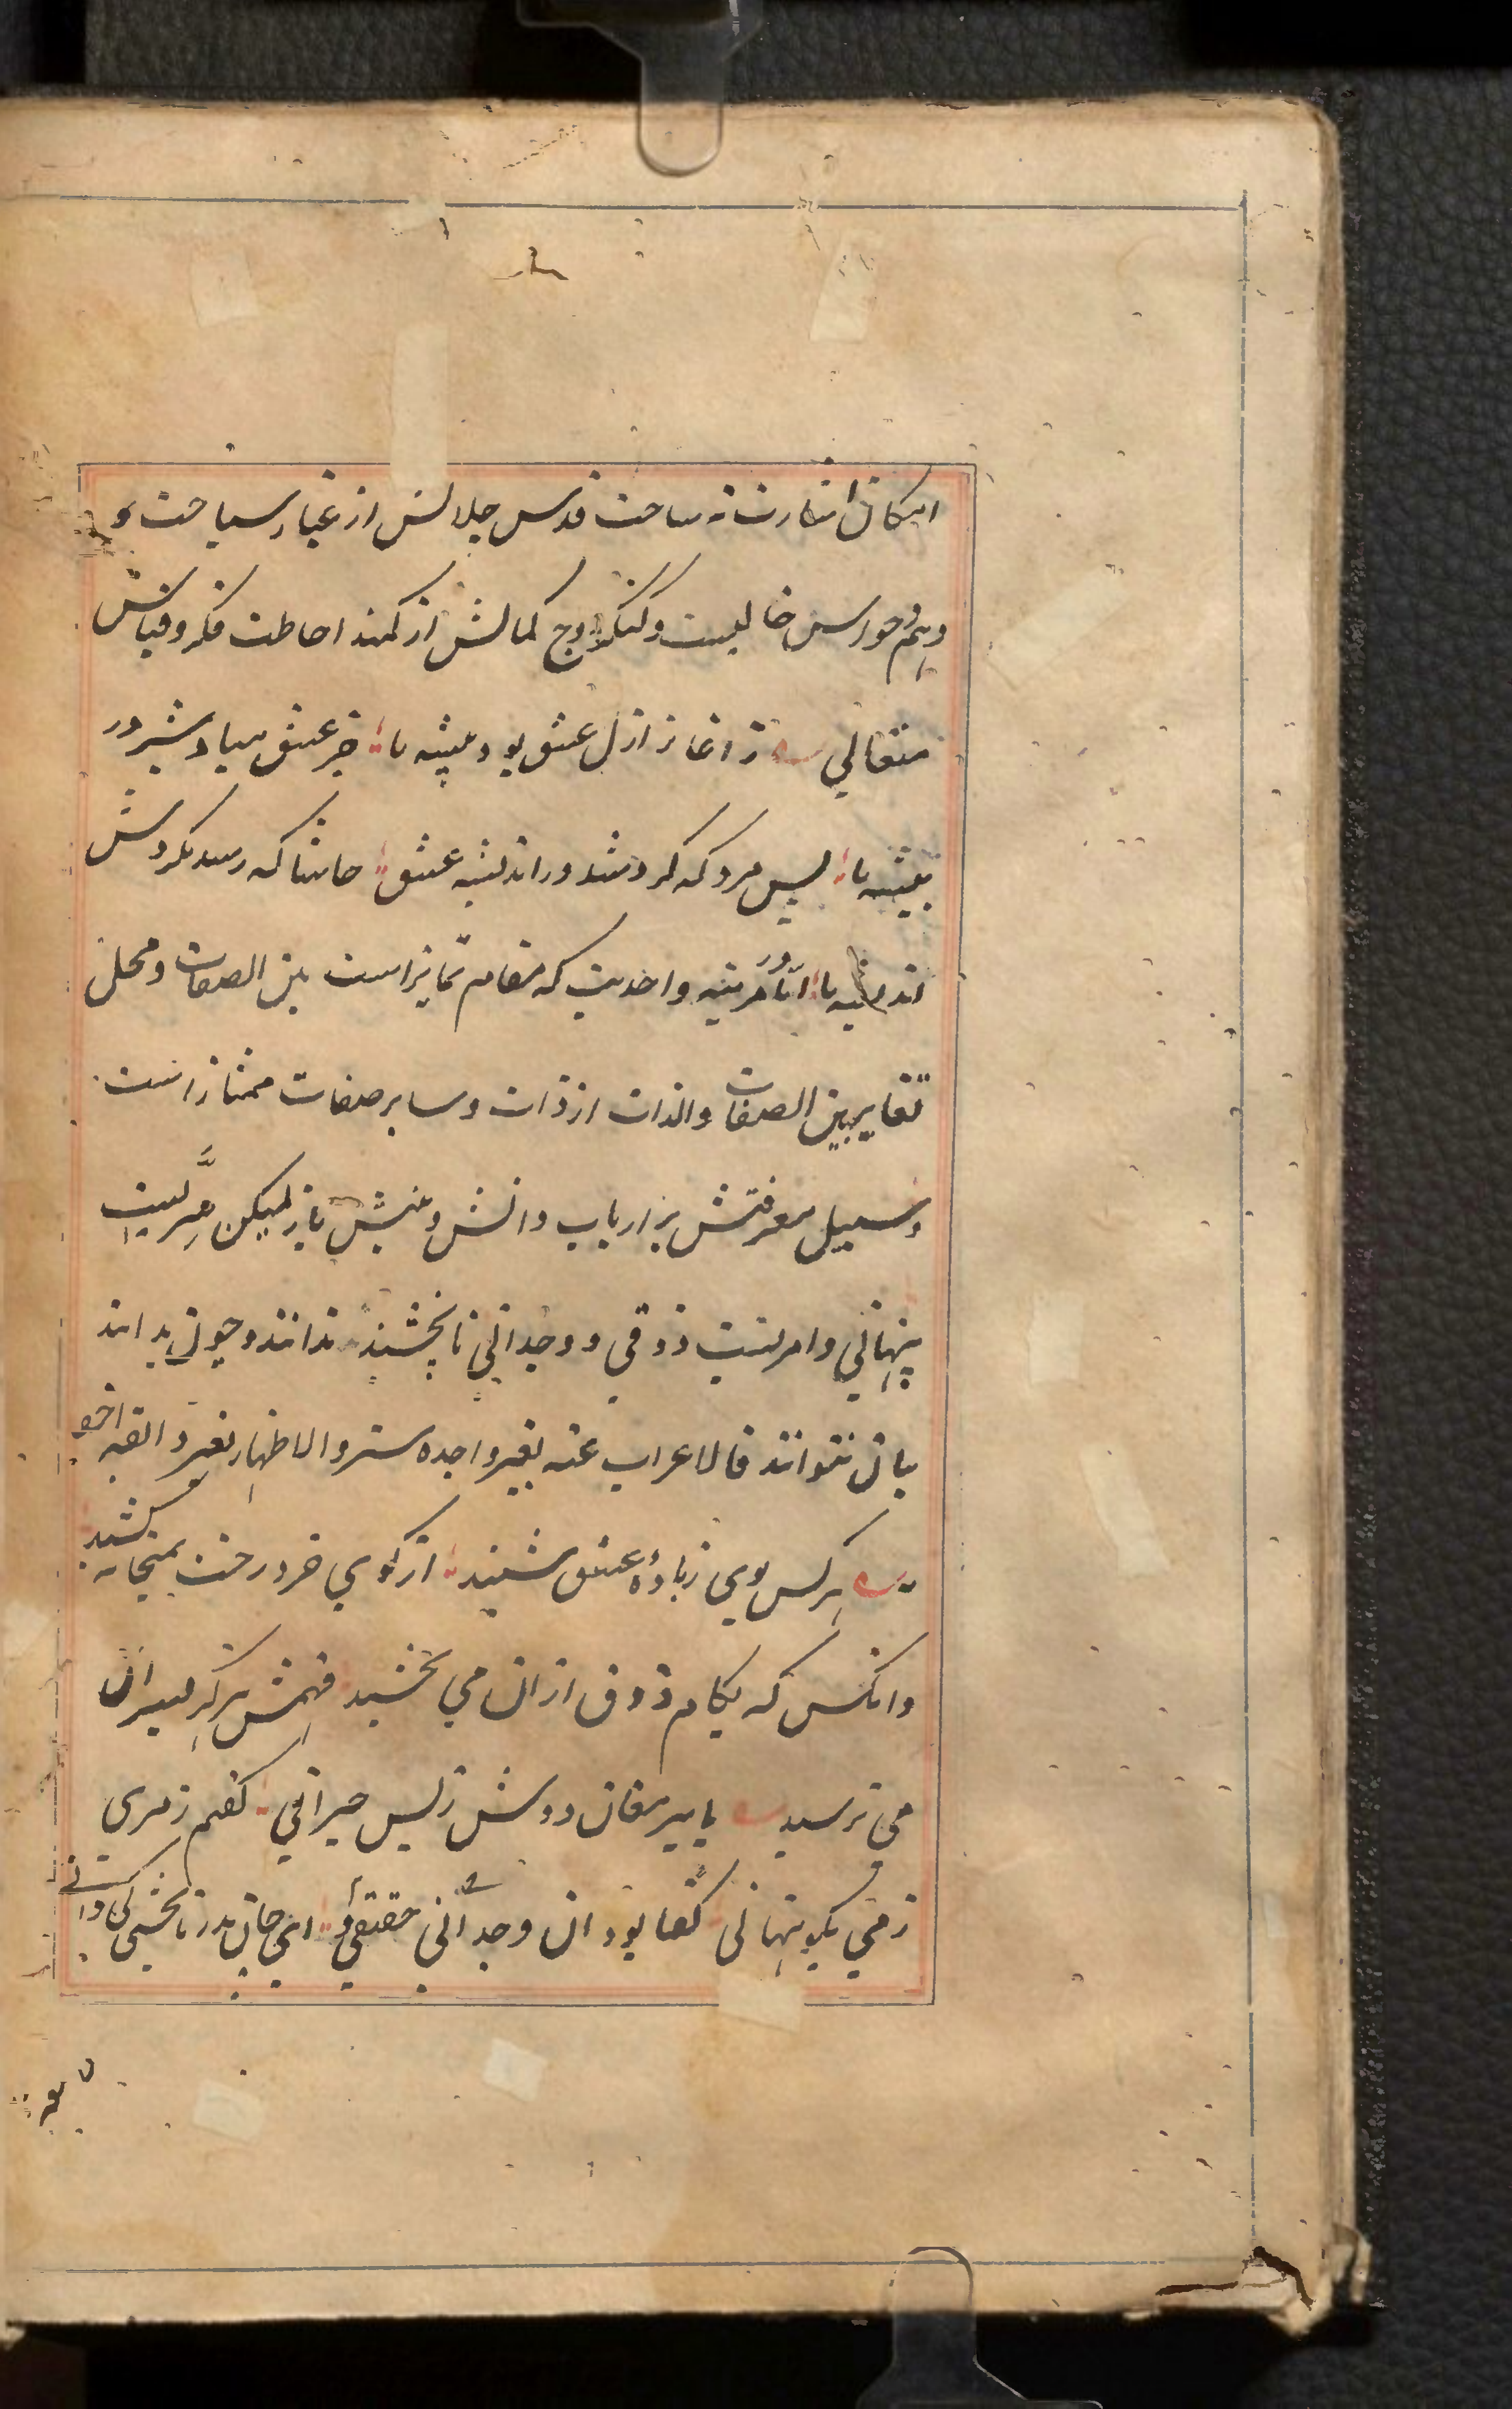 امکان اشارت نه ساحت قدس جلالش از غبار سیاحت و
وهم و حواس خالیست و کنگره اوج کمالش از کمند احاطت فکر و قیاس
متعالی ز اغاز ازل عشق بود پیشه ما جز عشق مباد شیر در
بیشه ما پس مرد که کرد شد در اندیشه عشق حاشا که رسد بکردش
اندیشه ما اما در مرتبه واحدیت که مقام تمایز است بین الصفات و محل
تغایر بین الصفات والذات از ذات و سایر صفات ممتاز است
و سبیل معرفتش بر ارباب دانش و بینش باز لیکن سریست
پنهانی و امریست ذوقی و وجدانی تا نچشند ندانند و چون بدانند
بیان نتوانند فالاعراب عنه لغیر واجده ستر والاظهار لغیر ذائقه اخفا
هرکس بوی ز بادهٔ عشق شنید از کوی خرد رخت بمیخانه کشید
وانکس که بکام ذوق ازان می نچشید فهمش هرگز بسر آن
می نرسید با پیر مغان دوش ز بس حیرانی گفتم رمزی
ز می بگو پنهانی گفتا بود آن وجدانی حقیقتی ای جان پدر تا نچشی کی دانی